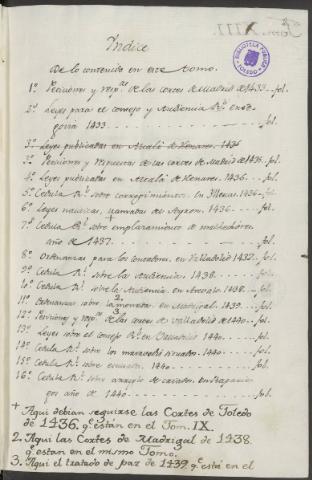 Indice
De lo contenido en este tomo.
1º Peticiones y resp.tas de las cortes de Madrid de 1433. fol.
2º Leyes para el consejo y Audiencia Rl. en Se-
govia 1433. fol.
3º Leyes publicadas en Alcalá de Henares. 1436
3º Peticiones y Respuestas de las cortes de Madrid de 1435. fol.
4º Leyes publicadas en Alcalá de Henares. 1436. fol.
5º Cedula Rl. sobre corregimientos. en Illescas. 1436. fol.
6º Leyes nauticas, llamadas de Layron. 1436. fol.
7º Cedula Rl. sobre emplazamiento de malhechores
año de 1437. fol.
8º Ordenanzas para los contadores, en Valladolid 1437. fol.
9º Cedula Rl. sobre la Audiencia. 1438. fol.
10º Cedula Rl. sobre la Audiencia. en Arevalo. 1438. fol.
11º Ordenanzas sobre la moneda, en Madrigal. 1439. fol.
12º Peticiones y resp.tas de las cortes de Valladolid de 1440. fol.
13º Leyes sobre el consejo Rl. en Valladolid. 1440. fol.
14º Cedula Rl. sobre los maravedis situados. 1440. fol.
15º Cedula Rl. sobre 1440. fol.
16º Cedula Rl. sobre
por año de 1440. fol.
+ Aqui debian seguirse las Cortes de Toledo
de 1436. q.e están en el Tom. IX.
2. Aqui las Cortes de Madrigal de 1438.
q.e estan en el mismo Tomo.
3. Aqui el tratado de paz de 1439. q.e está en el
BIBLIOTECA PUBLICA
TOLEDO